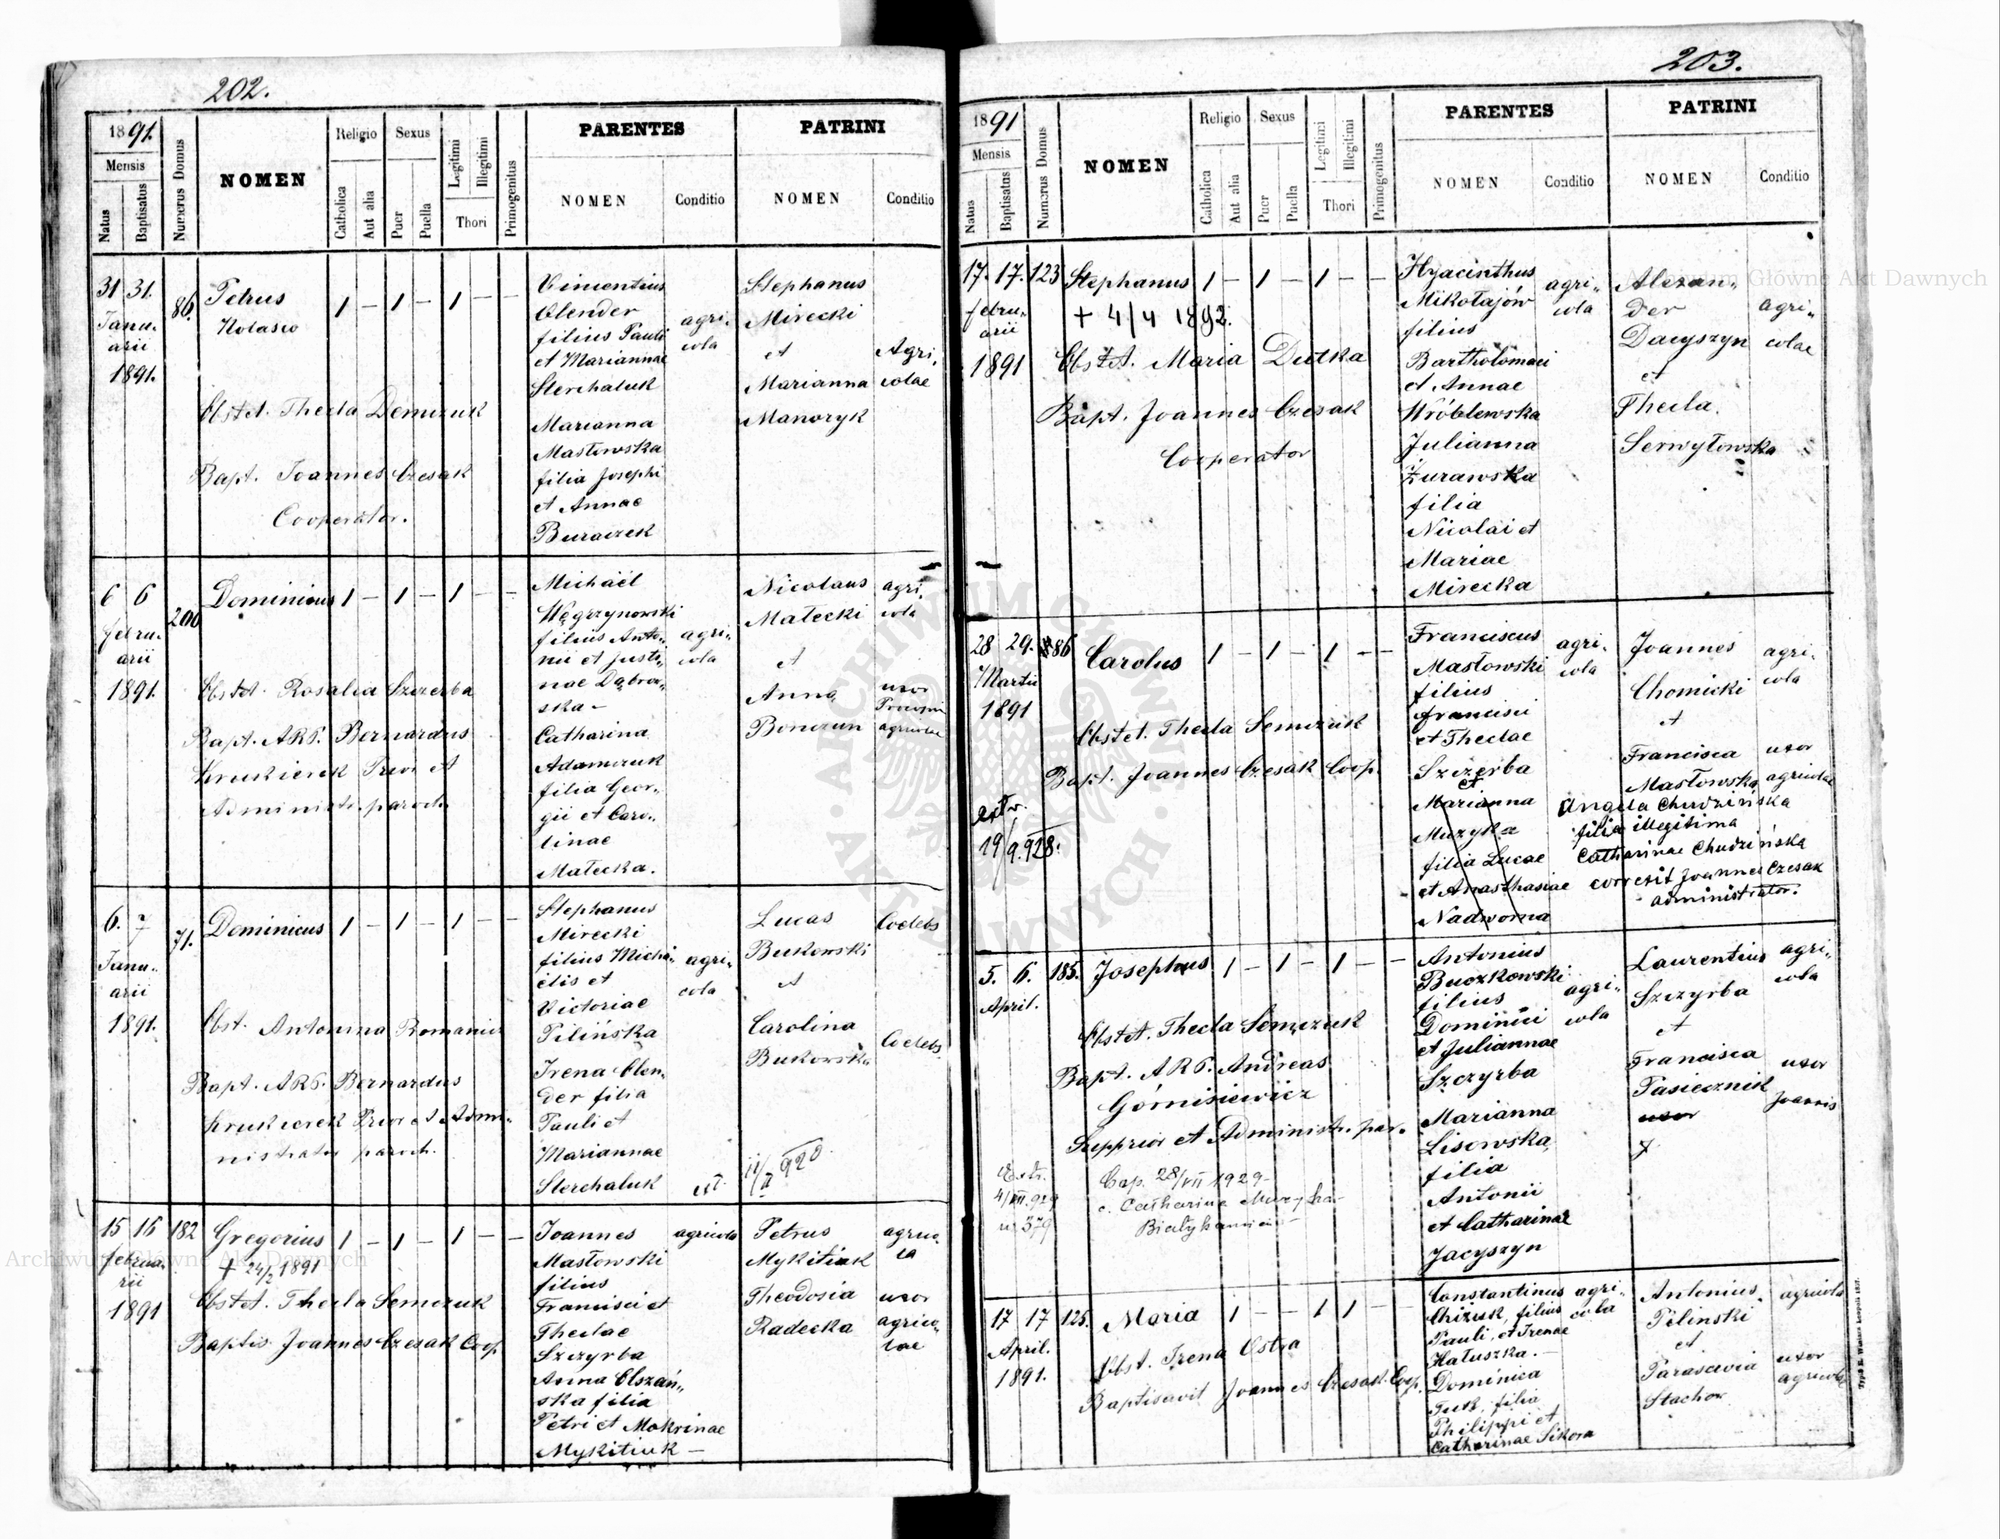 202.
1891.
Mensis
Natus
Baptisatus
Numerus Domus
NOMEN
Religio
Catholica
Aut alia
Sexus
Puer
Puella
Legitimi
Illegitimi
Thori
Primogenitus
PARENTES
NOMEN
Conditio
PATRINI
NOMEN
Conditio
31 31.
Janu-
arii
1891.
86.
Petrus
1 — 1 — 1 — —
Obstet. Thecla
Bapt. Joannes Czesak
Cooperator.
Vincentius
Olender
filius Pauli
et Mariannae
Sterchaluk
Marianna
Masłowska
filia Josephi
et Annae
Buraczek
agri-
cola
Stephanus
Mirecki
et
Marianna
Manoryk
Agri-
colae
6 6
febru-
arii
1891.
200
Dominicus
1 — 1 — 1 — —
Obstet. Rosalia Szczerba
Bapt. ARP. Bernardus
Krukierek Prior et
Administr. paroch.
Michaël
Węgrzynowski
filius Anto-
nii et Justi-
nae Dąbrow-
ska -
Catharina
Adamczuk
filia Geor-
gii et Caro-
linae
Małecka.
agri-
cola
Nicolaus
Małecki
et
Anna
Bonczun
agri-
cola
uxor
agricolae
6. 7
Janu-
arii
1891.
71.
Dominicus
1 — 1 — 1 — —
Obst. Antonina Romanicz
Bapt. ARP. Bernardus
Krukierek Prior et Admi-
nistrator paroch.
Stephanus
Mirecki
filius Micha-
elis et
Victoriae
Pilińska
Irena Olen-
der filia
Pauli et
Mariannae
Sterchaluk
agri-
cola
Lucas
Bukowski
et
Carolina
Bukowska
Coelebs
Coelebs
15 16 182
februa-
rii
1891
Gregorius
1 — 1 — 1 — —
+ 24/2 1891
Obstet. Thecla Semczuk
Baptis. Joannes Czesak Coop.
Joannes
Masłowski
filius
Francisci et
Theclae
Szczyrba
Anna Olszań-
ska filia
Petri et Makrinae
Mykitiuk —
agricola
Petrus
Mykitiuk
Theodosia
Radecka
agrico-
la
uxor
agrico-
lae
203.
1891
Mensis
Natus
Baptisatus
Numerus Domus
NOMEN
Religio
Catholica
Aut alia
Sexus
Puer
Puella
Legitimi
Illegitimi
Thori
Primogenitus
PARENTES
NOMEN
Conditio
PATRINI
NOMEN
Conditio
17. 17. 123
febru-
arii
1891
Stephanus
1 — 1 — 1 — —
+ 4/4 1892.
Obstet. Maria Dutka
Bapt. Joannes Czesak
Cooperator
Hyacinthus
Mikołajów
filius
Bartholomaei
et Annae
Wróblewska
Julianna
Żurawska
filia
Nicolai et
Mariae
Mirecka
agri-
cola
Alexan-
der
Dacyszyn
et
Thecla
Serwytowska
agri-
colae
28 29. 86
Martii
1891
Carolus
1 — 1 — 1 — —
Obstet. Thecla Semczuk
Bapt. Joannes Czesak Coop.
19/9.928.
Franciscus
Masłowski
filius
Francisci
et Theclae
Szczerba
et
Marianna
Muzyka
filia Lucae
et Anasthasiae
Nadworna
agri-
cola
Joannes
Chomicki
et
Francisca
Masłowska
agri-
cola
uxor
agricolae
Angela Chudzińska
filia illegitima
Catharinae Chudzińska
correxit Joannes Czesak
administrator.
5. 6. 185.
April.
Josephus
1 — 1 — 1 — —
Obstet. Thecla Semczuk
Bapt. ARP. Andreas
Górnisiewicz
Supprior et Administr. par.
Extr.
4/VII.929
n: 379
Cop. 28/VII 1929-
c. Catharina Muzyka
Antonius
Buczkowski
filius
Dominici
et Juliannae
Szczyrba
Marianna
Lisowska,
filia
Antonii
et Catharinae
Jacyszyn
agri-
cola
Laurentius
Szczyrba
et
Francisca
Pasiecznik
uxor
agri-
cola
uxor
Joannis
17 17 125.
April.
1891.
Maria
1 — — 1 1 — —
Obst. Irena Ostra
Baptisavit Joannes Czesak Coop.
Constantinus
Chiżuk, filius
Pauli, et Irenae
Hałuszka. —
Dominica
filia
Philippi et
Catharinae Sikora
agri-
cola
Antonius
Pilinski
et
Parascevia
Stachow
agricola
uxor
agricolae
Archiwum Główne Akt Dawnych
Archiwum Główne Akt Dawnych
ARCHIWUM GŁÓWNE AKT DAWNYCH